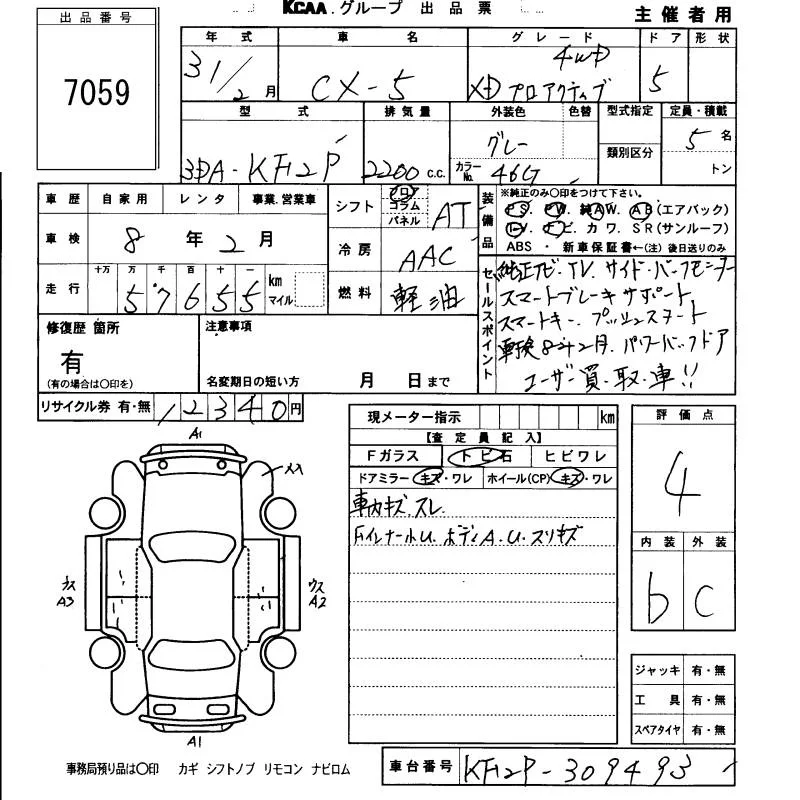 KCAA.グループ 出品票
主催者用
出品番号
7059
年式 車名 グレード ドア 形状
31/2月 CX-5 4WD XDプロアクティブ 5
型式 排気量 外装色 色替 型式指定 定員・積載
3DA-KF2P 2200 c.c. グレー カラーNo. 46G 類別区分 5名 トン
車歴 自家用 レンタ 事業.営業車
車検 8年2月
走行 十万 万 千 百 十 一 km マイル
57655
シフト フロ コラム パネル AT
冷房 AAC
燃料 軽油
装備品
※純正のみ〇印をつけて下さい。
PS. PW. 純AW. AB(エアバック)
TV. ナビ. カワ. SR(サンルーフ)
ABS ・ 新車保証書←(注) 後日送りのみ
セールスポイント
純正ナビ.TV.サイド.バックモニター
スマートブレーキサポート
スマートキー.プッシュスタート
車検8年2月.パワーバックドア
ユーザー買取車!!
修復歴 箇所 注意事項
有
(有の場合は〇印を) 名変期日の短い方 月 日まで
リサイクル券 有・無 12340円
現メーター指示 km
【査定員記入】
Fガラス トビ石 ヒビワレ
ドアミラー キズ・ワレ ホイール(CP) キズ・ワレ
車内キズ.スレ
ボディA.U.スリキズ
評価点
4
内装 外装
b C
A1
A3
A2
A1
ジャッキ 有・無
工具 有・無
スペアタイヤ 有・無
事務局預り品は〇印 カギ シフトノブ リモコン ナビロム
車台番号 KF2P-309493